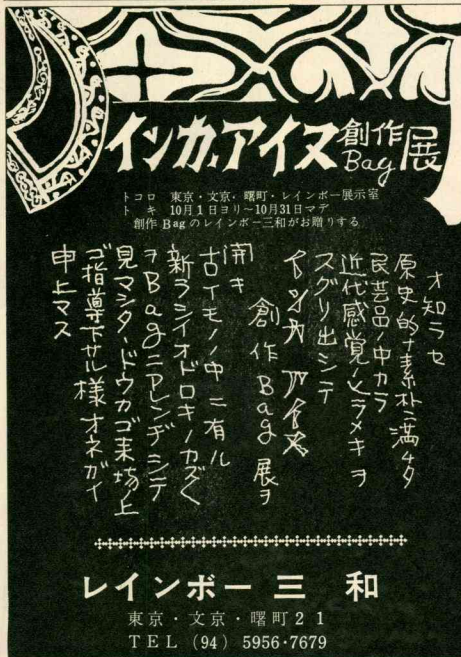 インカ.アイヌ創作Bag展
トコロ 東京・文京・曙町・レインボー展示室
トキ 10月1日ヨリ〜10月31日マデ
創作Bagのレインボー三和がお贈りする
オ知ラセ
原史的ナ素朴ニ満タ
民芸品ノ中カラ
近代感覚ノヒラメキヲ
スグリ出シテ
インカ アイヌ
創作Bag展ヲ
開キ
古イモノノ中ニ有ル
新ラシイオドロキノカズ〱
ヲBagニアレンヂシテ
見マシタ・ドウカゴ来場上
ゴ指導下サル様オネガイ
申上マス
レインボー三和
東京・文京・曙町21
TEL (94) 5956・7679